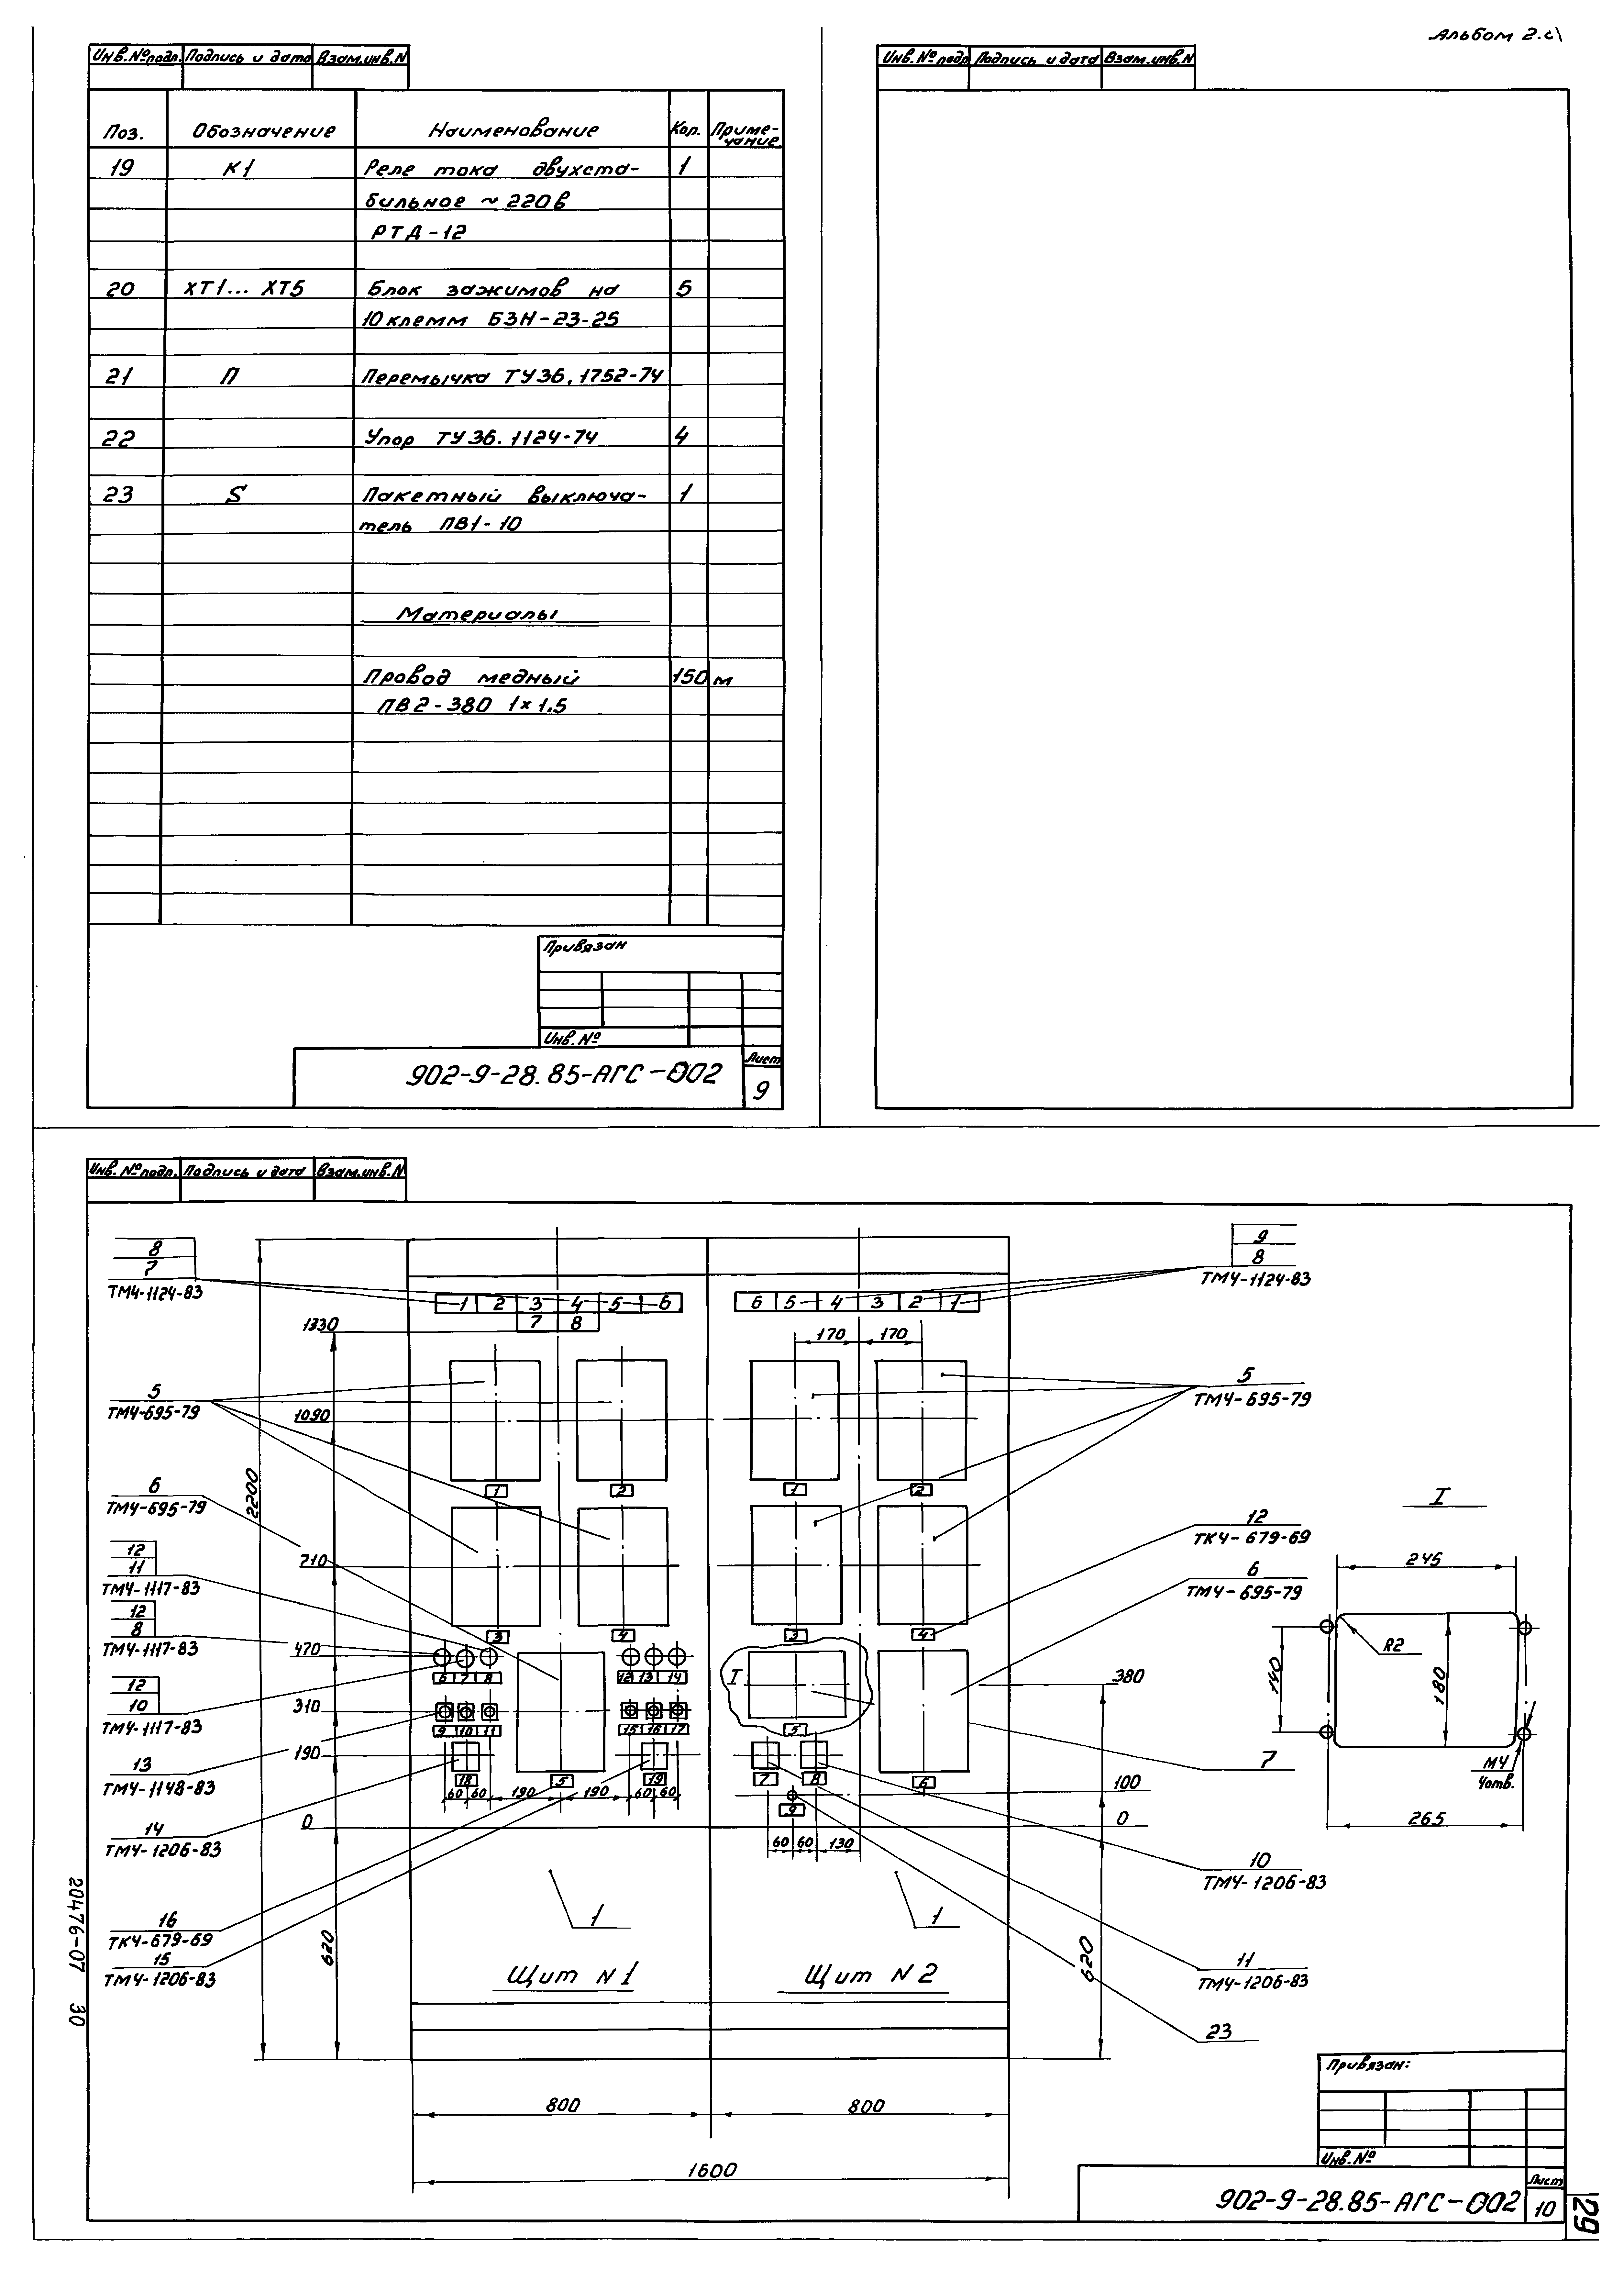 Альбом 2.
Инв.№подл. Подпись и дата Взам.инв.N
Поз. Обозначение Наименование Кол. Приме-
чание
19 К1 Реле тока двухста- 1
бильное ~ 220в
РТД-12
20 ХТ1... ХТ5 Блок зажимов на 5
10 клемм БЗН-23-25
21 П Перемычка ТУ36.1752-74
22 Упор ТУ36.1124-74 4
23 S Пакетный выключа- 1
тель ПВ1-10
Материалы
Провод медный 150 м
ПВ2-380 1×1.5
Привязан
Инв.№
902-9-28.85-АГС-002
Лист
9
Инв.№подл Подпись и дата Взам.инв.N
Инв.№подл. Подпись и дата Взам.инв.N
8
7
ТМ4-1124-83
5
ТМ4-695-79
6
ТМ4-695-79
12
11
ТМ4-1117-83
12
8
ТМ4-1117-83
12
10
ТМ4-1117-83
13
ТМ4-1148-83
14
ТМ4-1206-83
16
ТК4-679-69
15
ТМ4-1206-83
2200
1330
1090
710
470
310
190
0
620
1 2 3 4 5 6
7 8
1 2
3 4
6 7 8 12 13 14
9 10 11 15 16 17
18 5 19
60 60 190 190 60 60
1
Щит N1
6 5 4 3 2 1
170 170
1 2
3 4
I
5
7 8 6
9
60 60 130
1
Щит N2
380
100
0
620
800 800
1600
9
8
ТМ4-1124-83
5
ТМ4-695-79
12
ТК4-679-69
6
ТМ4-695-79
7
10
ТМ4-1206-83
11
ТМ4-1206-83
23
I
245
R2
140
180
М4
4отв.
265
Привязан:
Инв.№
902-9-28.85-АГС-002
Лист
10
29
20476-07 30